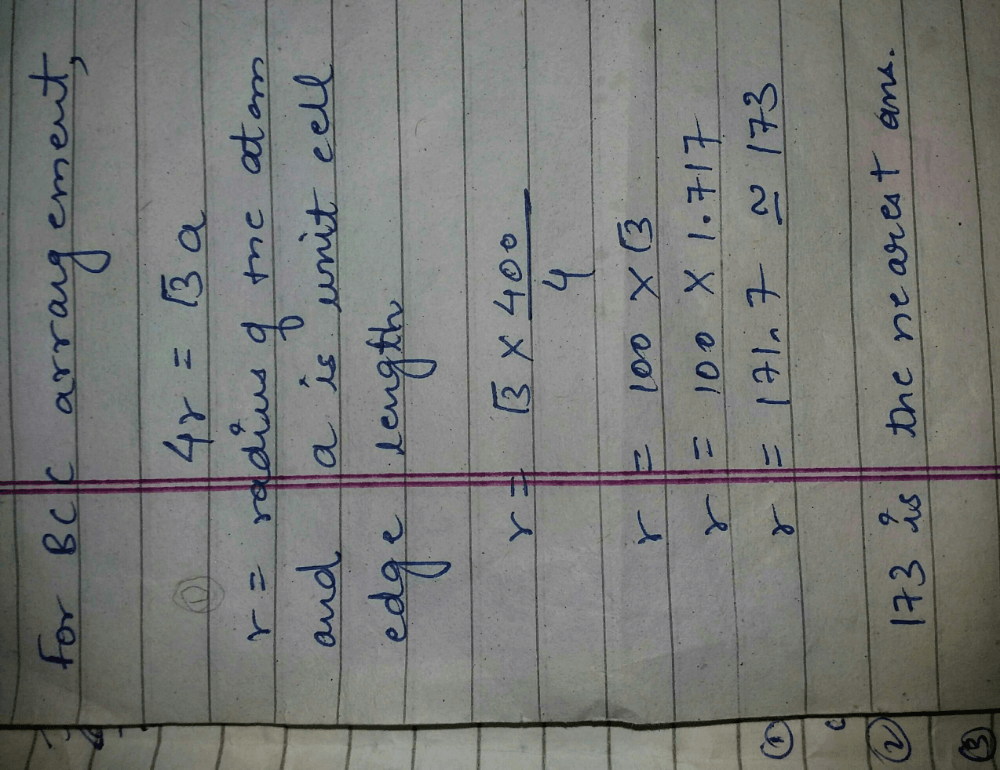 For BCC arrangement,
4r = √3 a
r = radius of the atom
and a is unit cell
edge length
r = √3 × 400 / 4
r = 100 × √3
r = 100 × 1.717
r = 171.7 ≃ 173
173 is the nearest ans.
①
②
③